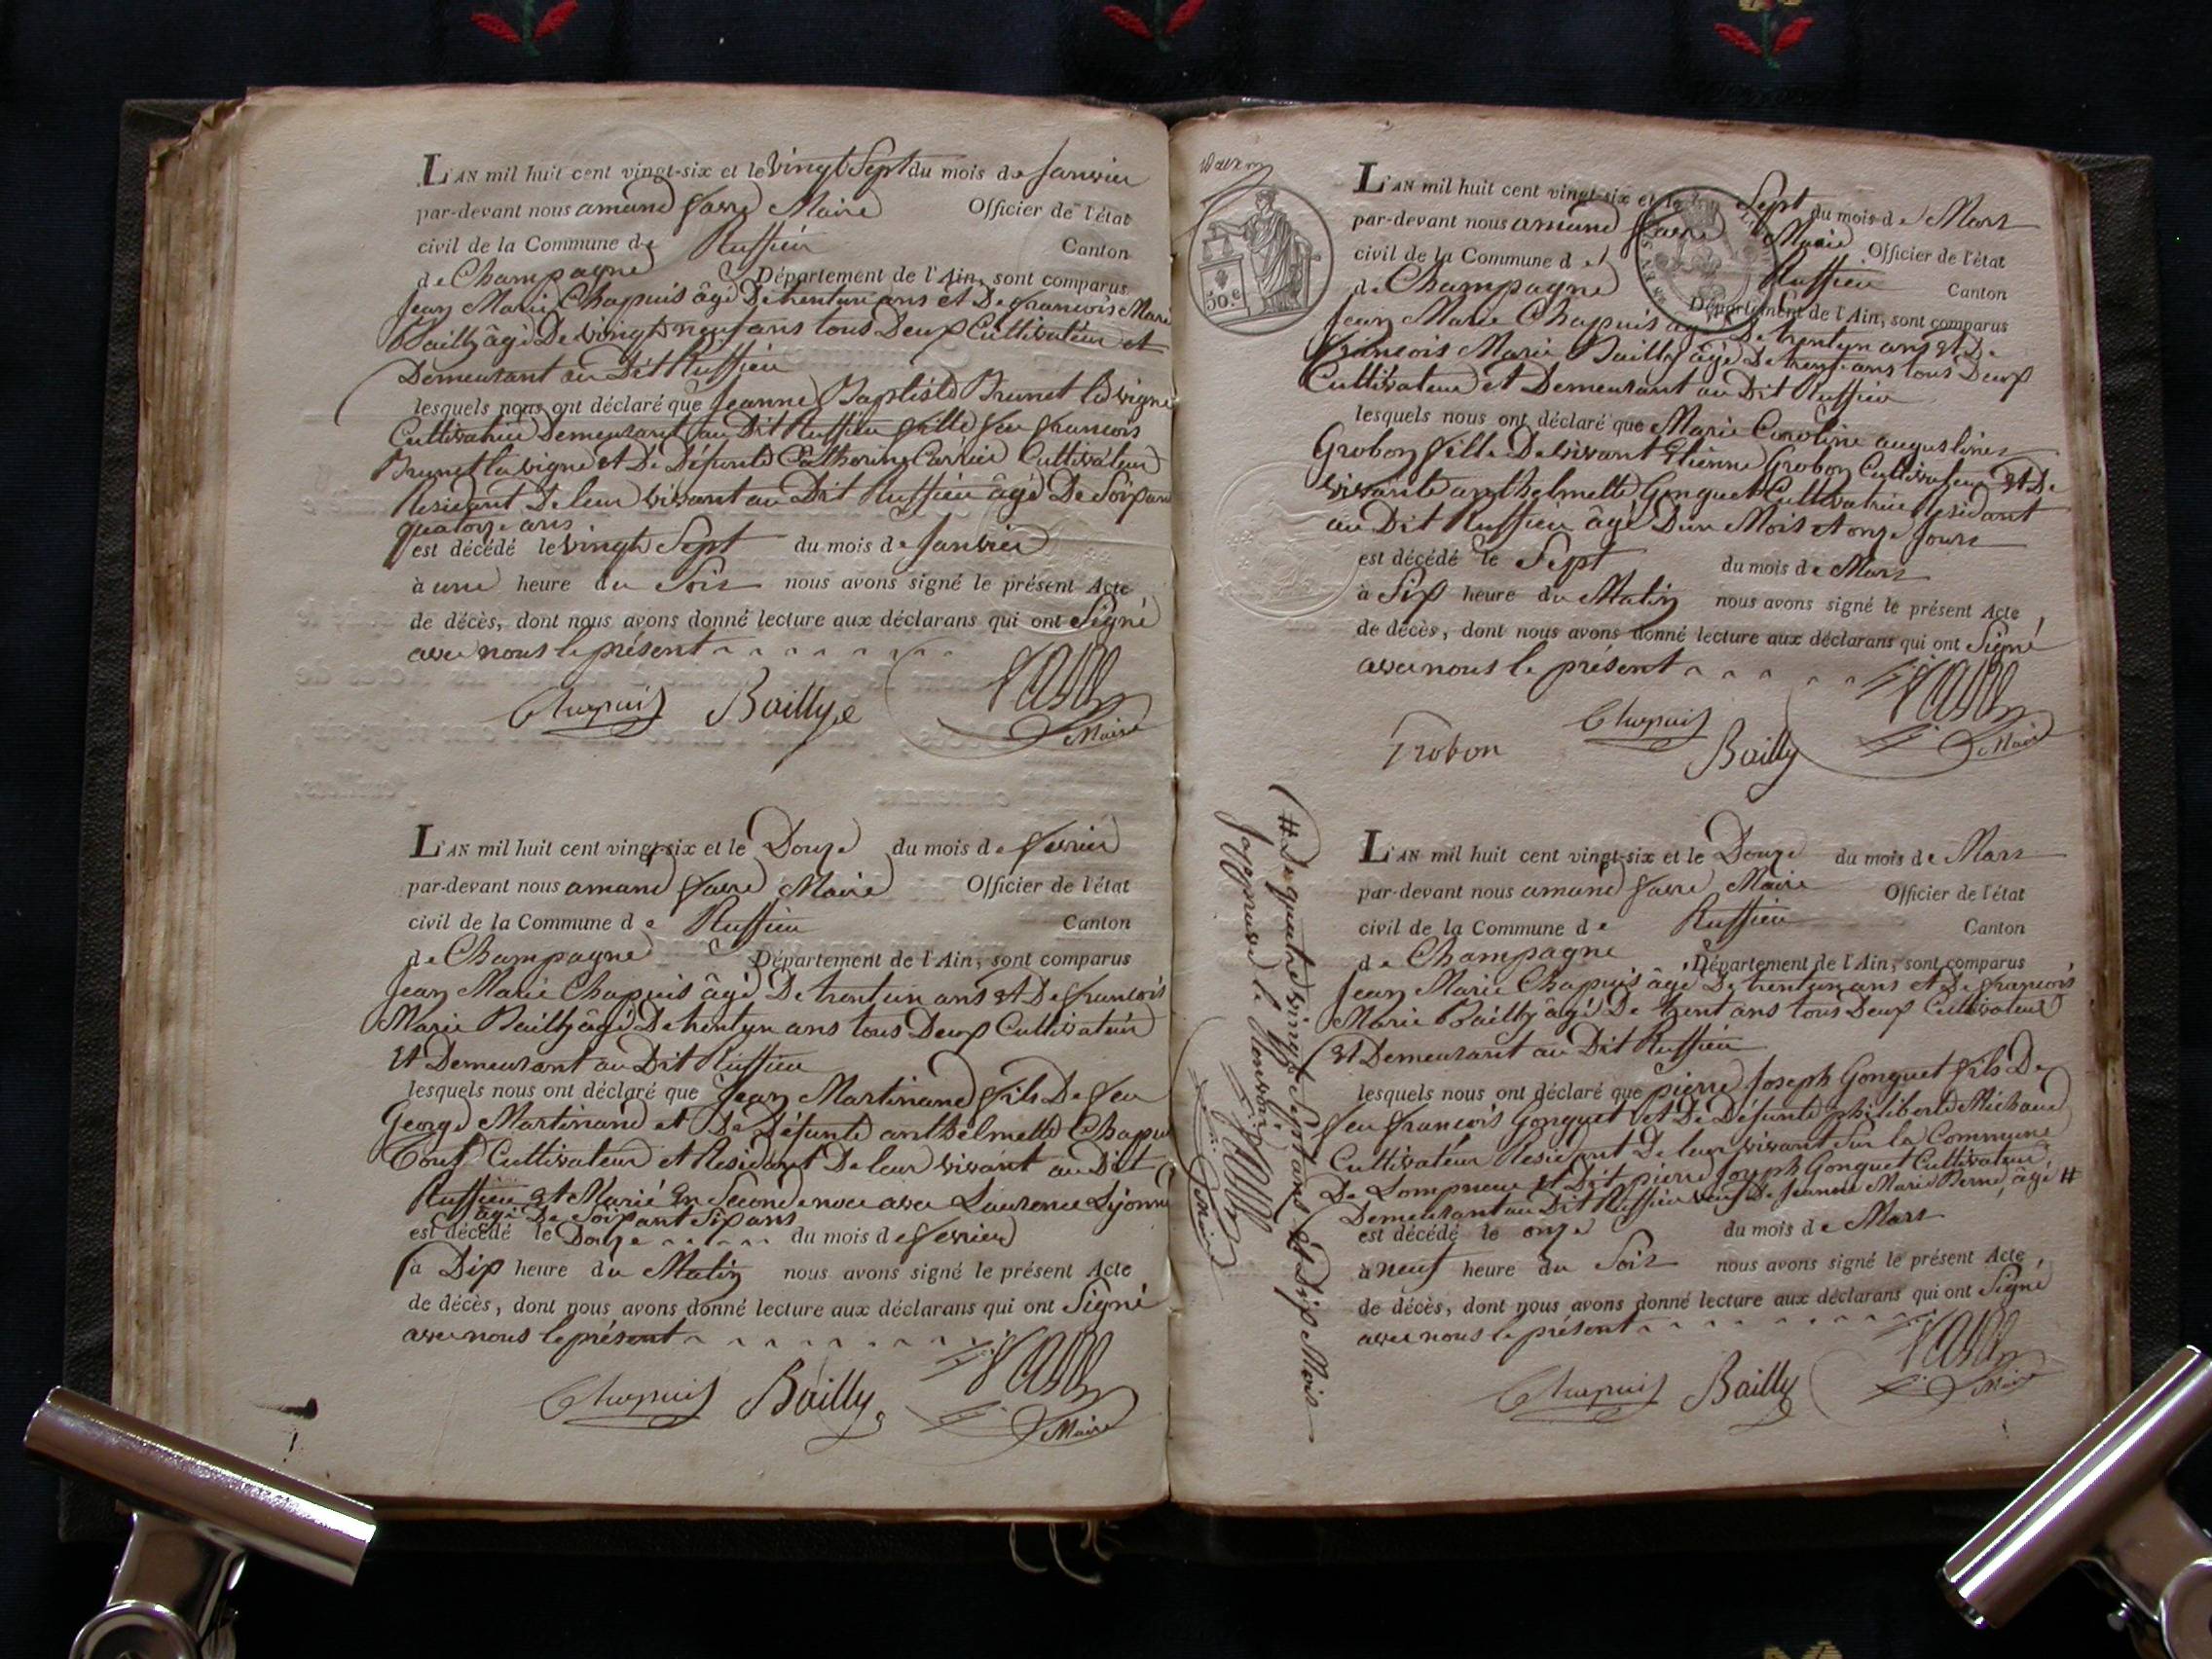 L'AN mil huit cent vingt-six et le vingt Sept du mois de Janvier
par-devant nous amand favre Maire Officier de l'état
civil de la Commune de Ruffieu Canton
de Champagne Département de l'Ain, sont comparus
Jean Marie Chapuis âgé De trentun ans et De francois Marie
Bailly âgé De vingt neuf ans tous Deux Cultivateur et
Demeurant au Dit Ruffieu
lesquels nous ont déclaré que Jeanne Baptiste Brunet la vigne
Cultivatrice Demeurant au Dit Ruffieu fille feu francois
Brunet la vigne et De Défunte Catherine Carrier Cultivateur
Residant De leur vivant au Dit Ruffieu âgé De Soixante
quatorze ans
est décédé le vingt Sept du mois de Janvier
à une heure du Soir nous avons signé le présent Acte
de décès, dont nous avons donné lecture aux déclarans qui ont Signé
avec nous le présent
Chapuis Bailly favre
Maire
L'AN mil huit cent vingt-six et le Douze du mois de fevrier
par-devant nous amand favre Maire Officier de l'état
civil de la Commune de Ruffieu Canton
de Champagne Département de l'Ain, sont comparus
Jean Marie Chapuis âgé De trentun ans et De francois
Marie Bailly âgé De trentun ans tous Deux Cultivateur
et Demeurant au Dit Ruffieu
lesquels nous ont déclaré que Jean Martinand fils De feu
George Martinand et De Défunte anthelmette Chapuis
Tous Cultivateur et Residant De leur vivant au Dit
Ruffieu et Marié en Seconde noce avec Laurence Lyonne
âgé De Soixant Six ans
est décédé le Douze du mois de fevrier
à Dix heure du Matin nous avons signé le présent Acte
de décès, dont nous avons donné lecture aux déclarans qui ont Signé
avec nous le présent
Chapuis Bailly favre
Maire
50.c
L'AN mil huit cent vingt-six et le Sept du mois de Mars
par-devant nous amand favre Maire Officier de l'état
civil de la Commune de Ruffieu Canton
de Champagne Département de l'Ain, sont comparus
Jean Marie Chapuis âgé De trentun ans et De
francois Marie Bailly âgé De trent ans tous Deux
Cultivateur et Demeurant au Dit Ruffieu
lesquels nous ont déclaré que Marie Caroline augustines
Grobon fille De vivant Etienne Grobon Cultivateur et De
vivante anthelmette Gonguet Cultivatrice Residant
au Dit Ruffieu âgé Dun Mois et onze Jours
est décédé le Sept du mois de Mars
à Six heure du Matin nous avons signé le présent Acte
de décès, dont nous avons donné lecture aux déclarans qui ont Signé
avec nous le présent
Grobon Chapuis Bailly favre
Maire
L'AN mil huit cent vingt-six et le Douze du mois de Mars
par-devant nous amand favre Maire Officier de l'état
civil de la Commune de Ruffieu Canton
de Champagne Département de l'Ain, sont comparus
Jean Marie Chapuis âgé De trentun ans et De francois
Marie Bailly âgé De trent ans tous Deux Cultivateur
et Demeurant au Dit Ruffieu
lesquels nous ont déclaré que pierre Joseph Gonguet fils De
feu francois Gonguet et De Défunte philiberte Michaud
Cultivateur Residant De leur vivant Sur la Commune
De Lompnieu et Dit pierre Joseph Gonguet Cultivateur
Demeurant au Dit Ruffieu veuf De Jeanne Marie Berne âgé #
est décédé le onze du mois de Mars
à neuf heure du Soir nous avons signé le présent Acte
de décès, dont nous avons donné lecture aux déclarans qui ont Signé
avec nous le présent
Chapuis Bailly favre
Maire
# De quatre vingt Sept ans et Dix Mois
J'approuve le Renvoi favre
Maire